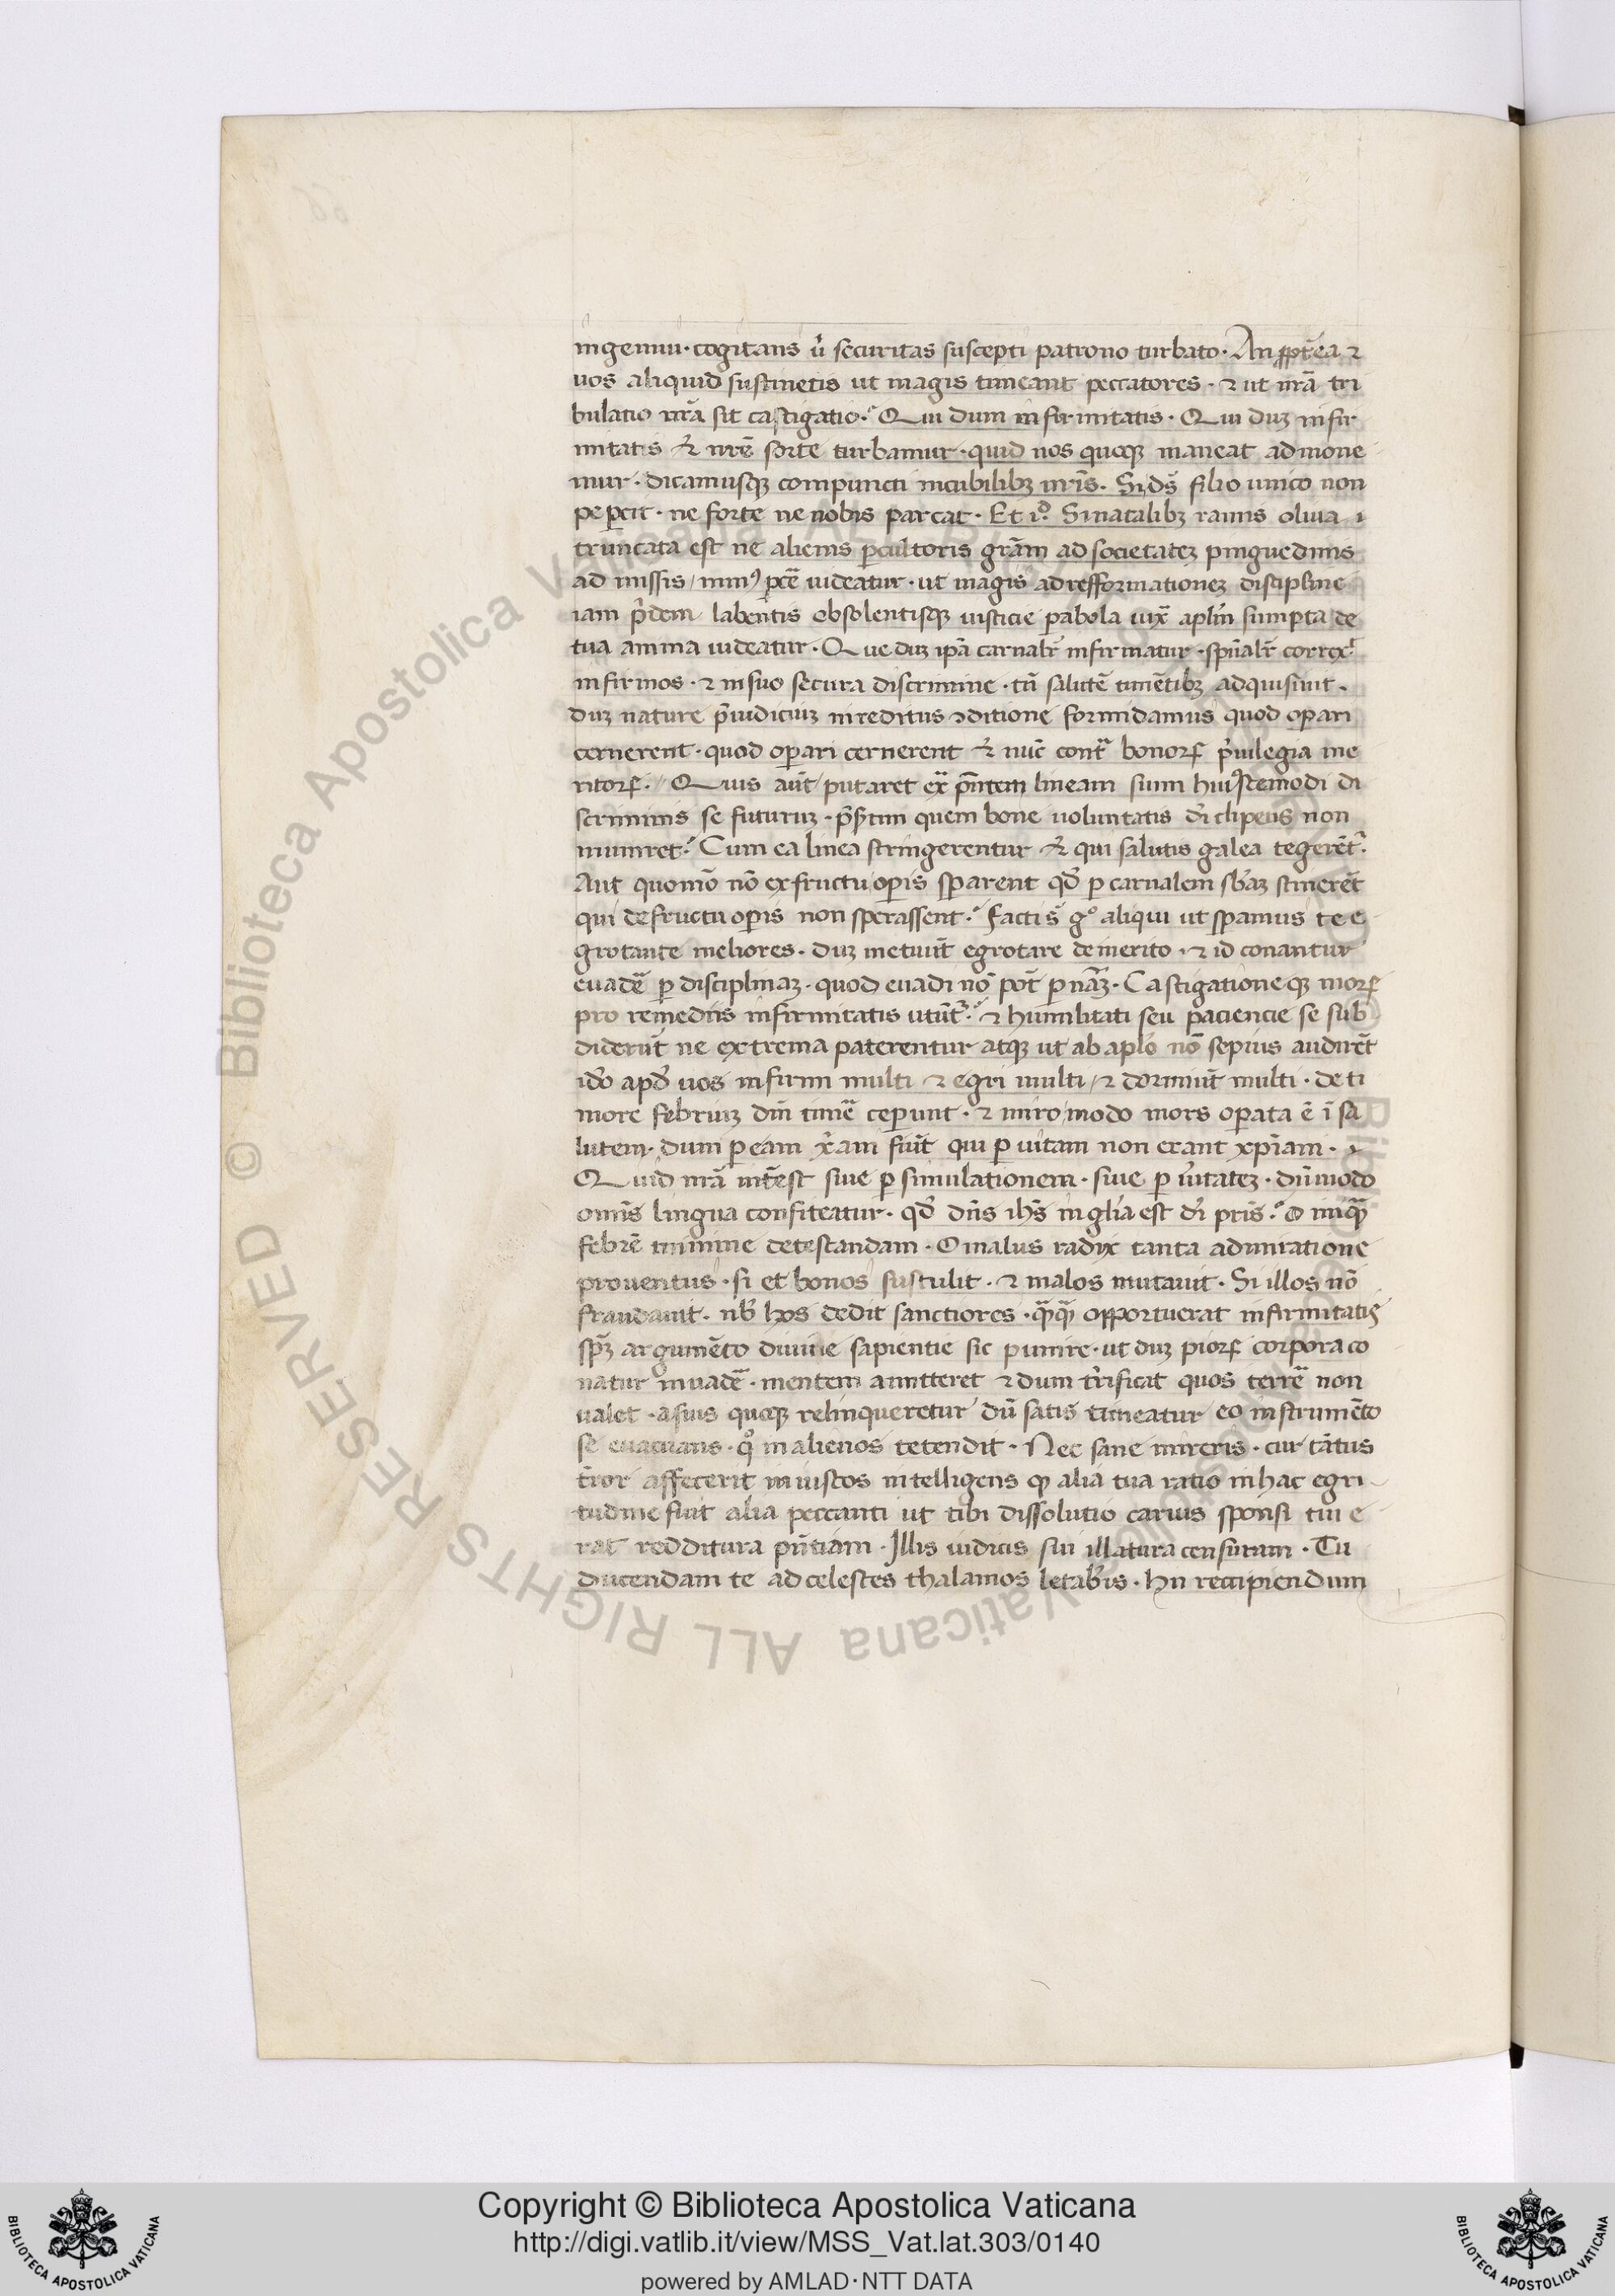 ingemui · cogitans u̾ securitas suscepti patrono turbato · An ꝓpt̃ea ⁊
uos aliquid sustinetis ut magis timeant peccatores · ⁊ ut ur̃a tri
bulatio nr̃a sit castigatio · Qui dum infirmitatis · Qui duʒ infir
mitatis ⁊ ur̃e sorte turbamur · quid nos quoqꝫ maneat admone
mur · dicamusqꝫ compuncti in cubilibꝫ nr̃is · Si ds̃ filio unico non
pepercit · ne forte ne nobis parcat · Et iº. Si natalibꝫ ramis oliua i
truncata est ne alienis ꝑ cultoris gr̃am ad societateʒ pinguedinis
ad missis / minꝰ pc̃e uideatur · ut magis ad refformationeʒ discipline
iam p̃dem labentis obsolentisqꝫ iusticie parabola iux̃ apl̃m sumpta de
tua anima uideatur · Que duʒ ip̃a carnalr̃ infirmatur · spũalr̃ correx̃
infirmos · ⁊ in suo secura discrimine · tñ salutẽ timẽtibꝫ adquisiuit ·
duʒ nature p̃iudiciuʒ in reditus ꝯditione formidamus quod opari
cernerent · quod opari cernerent ⁊ nũc cont̃ bonoꝝ p̃uilegia me
ritoꝝ · Quis aũt putaret ex̃ p̃ntem lineam suum huiꝰcemodi di
scriminis se futuruʒ · p̃s̃tim quem bone uoluntatis di̾ clipeus non
muniret · Cum ea linea stringerentur ⁊ qui salutis galea tegerẽt̃
Aut quomõ nõ ex fructu opis sparent qđ ꝑ carnalem sb̃aʒ stinerẽt
qui de fructu opis non sperassent · Facti s̃ gº aliqui ut spamus te e
grotante meliores · duʒ metuũt egrotare de merito · ⁊ id conantur
euadẽ ꝑ disciplinaʒ · quod euadi nõ pot̃ ꝑ nãʒ · Castigationeqꝫ moꝝ
pro remediis infirmitatis utũt̃ · ⁊ humilitati seu paciencie se sub
diderũt ne extrema paterentur atqꝫ ut ab apl̃o nõ sepius audirẽt
idõ apđ uos infirmi multi ⁊ egri multi / ⁊ dormiũt multi · de ti
more febriuʒ dñi timẽ ceperunt · ⁊ miro modo mors operata ẽ ĩ sa
lutem · dum ꝑ eam x̃am fiũt qui ꝑ uitam non erant xp̃iam ·
Quid nr̃a int̃est siue ꝑ simulationem · siue ꝑ u̾itateʒ · dũmodo
omĩs lingua confiteatur · qđ dñs ihs̃ in gl̃ia est di̾ pr̃is · O nuqᷓ
febrẽ minime detestandam · O malus radix tanta admiratione
prouentus · si et bonos sustulit · ⁊ malos mutauit · Si illos nõ
fraudauit · nb̃ hos dedit sanctiores · qᷓqᷓ opportuerat infirmitatis
sp̃ʒ argumẽto diuine sapientie sic punire · ut duʒ pioꝝ corpora co
natur inuadẽ · mentem amitteret ⁊ dum t̃rificat quos terrẽ non
ualet · a suis quoqꝫ relinqueretur dũ satis timeatur eo instrumẽto
se euacuans · qº in alienos tetendit · Nec sane mireris · cur tãtus
t̃ror affecerit in iustos intelligens qꝫ alia tua ratio in hac egri
tudine fiũt alia peccanti ut tibi dissolutio carius sponsi tui e
rat redditura pñtiam · Illis iudicis sui illatura censuram · Tu
ducendam te ad celestes thalamos letab̃is · Hii recipiendum
Copyright © Biblioteca Apostolica Vaticana
http://digi.vatlib.it/view/MSS_Vat.lat.303/0140
powered by AMLAD · NTT DATA
BIBLIOTECA APOSTOLICA VATICANA
BIBLIOTECA APOSTOLICA VATICANA
© Biblioteca Apostolica Vaticana ALL RIGHTS RESERVED